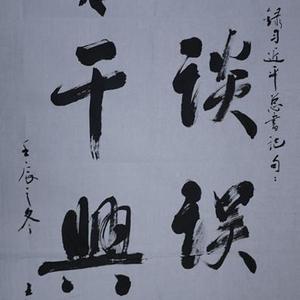 録习近平总書记句:
谈误
干興
壬辰之冬